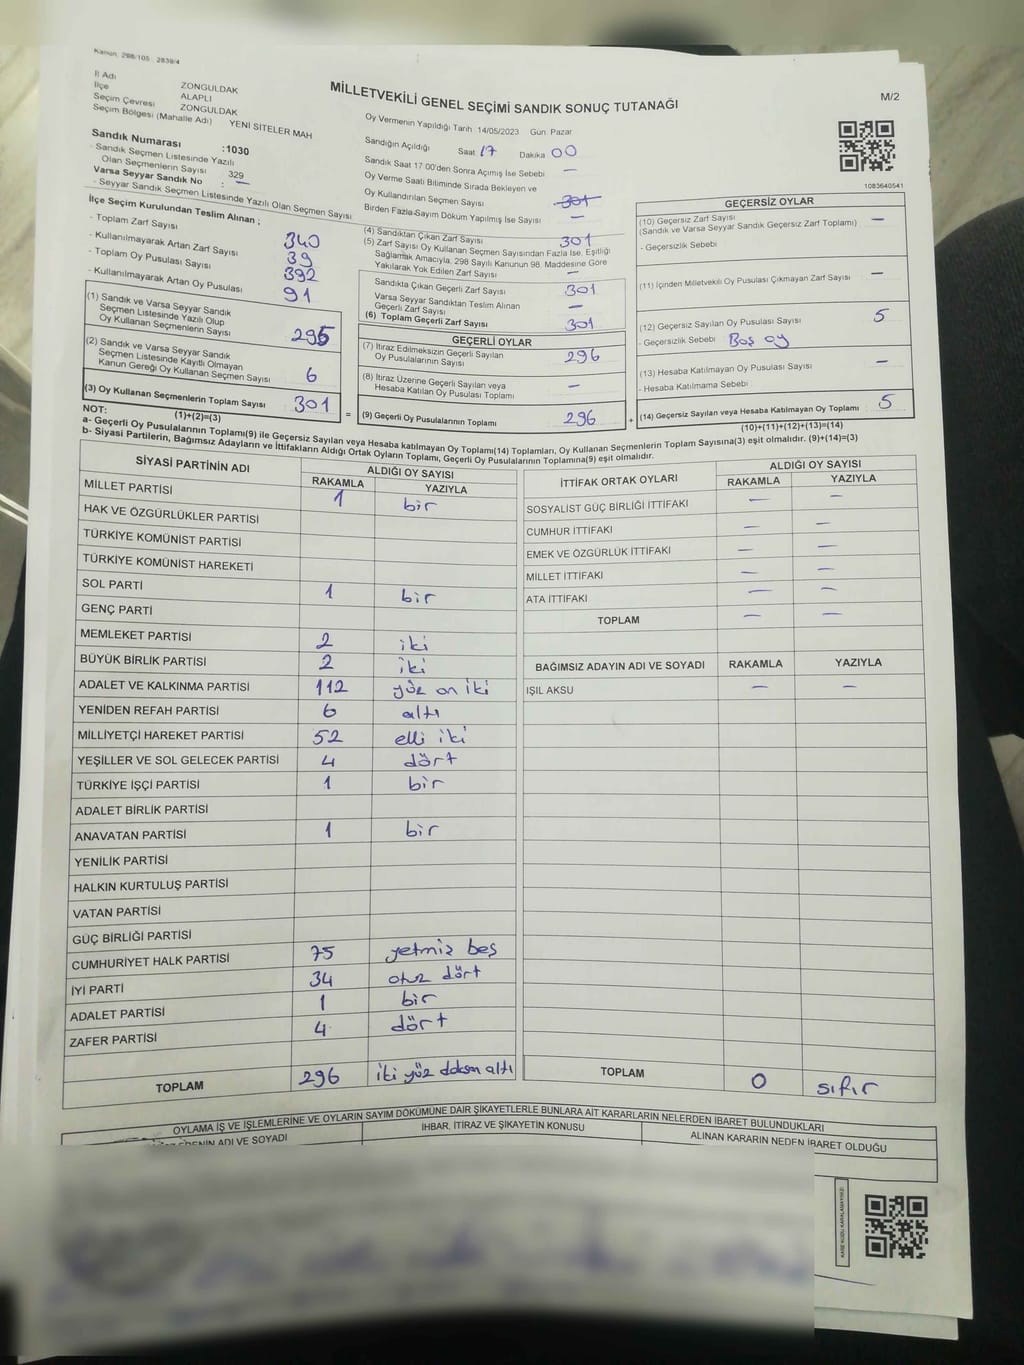 Kanun: 298/105 2839/4
İl Adı ZONGULDAK
İlçe ALAPLI
Seçim Çevresi ZONGULDAK
Seçim Bölgesi (Mahalle Adı) YENİ SİTELER MAH
Sandık Numarası :1030
- Sandık Seçmen Listesinde Yazılı
Olan Seçmenlerin Sayısı 329
Varsa Seyyar Sandık No : —
- Seyyar Sandık Seçmen Listesinde Yazılı Olan Seçmen Sayısı
MİLLETVEKİLİ GENEL SEÇİMİ SANDIK SONUÇ TUTANAĞI
M/2
Oy Vermenin Yapıldığı Tarih 14/05/2023 Gün Pazar
Sandığın Açıldığı Saat 17 Dakika 00
Sandık Saat 17:00'den Sonra Açılmış İse Sebebi —
Oy Verme Saati Bitiminde Sırada Bekleyen ve
Oy Kullandırılan Seçmen Sayısı 301
Birden Fazla Sayım Döküm Yapılmış İse Sayısı —
1083640541
İlçe Seçim Kurulundan Teslim Alınan ;
- Toplam Zarf Sayısı 340
- Kullanılmayarak Artan Zarf Sayısı 39
- Toplam Oy Pusulası Sayısı 392
- Kullanılmayarak Artan Oy Pusulası 91
(1) Sandık ve Varsa Seyyar Sandık
Seçmen Listesinde Yazılı Olup
Oy Kullanan Seçmenlerin Sayısı 295
(2) Sandık ve Varsa Seyyar Sandık
Seçmen Listesinde Kayıtlı Olmayan
Kanun Gereği Oy Kullanan Seçmen Sayısı 6
(3) Oy Kullanan Seçmenlerin Toplam Sayısı 301
(1)+(2)=(3)
(4) Sandıktan Çıkan Zarf Sayısı 301
(5) Zarf Sayısı Oy Kullanan Seçmen Sayısından Fazla İse, Eşitliği
Sağlamak Amacıyla, 298 Sayılı Kanunun 98. Maddesine Göre
Yakılarak Yok Edilen Zarf Sayısı —
Sandıkta Çıkan Geçerli Zarf Sayısı 301
Varsa Seyyar Sandıktan Teslim Alınan
Geçerli Zarf Sayısı —
(6) Toplam Geçerli Zarf Sayısı 301
GEÇERLİ OYLAR
(7) İtiraz Edilmeksizin Geçerli Sayılan
Oy Pusulalarının Sayısı 296
(8) İtiraz Üzerine Geçerli Sayılan veya
Hesaba Katılan Oy Pusulası Toplamı —
= (9) Geçerli Oy Pusulalarının Toplamı 296 +
GEÇERSİZ OYLAR
(10) Geçersiz Zarf Sayısı —
(Sandık ve Varsa Seyyar Sandık Geçersiz Zarf Toplamı)
- Geçersizlik Sebebi
(11) İçinden Milletvekili Oy Pusulası Çıkmayan Zarf Sayısı —
(12) Geçersiz Sayılan Oy Pusulası Sayısı 5
- Geçersizlik Sebebi Boş oy
(13) Hesaba Katılmayan Oy Pusulası Sayısı —
- Hesaba Katılmama Sebebi
(14) Geçersiz Sayılan veya Hesaba Katılmayan Oy Toplamı 5
(10)+(11)+(12)+(13)=(14)
NOT:
a- Geçerli Oy Pusulalarının Toplamı(9) ile Geçersiz Sayılan veya Hesaba katılmayan Oy Toplamı(14) Toplamları, Oy Kullanan Seçmenlerin Toplam Sayısına(3) eşit olmalıdır. (9)+(14)=(3)
b- Siyasi Partilerin, Bağımsız Adayların ve İttifakların Aldığı Ortak Oyların Toplamı, Geçerli Oy Pusulalarının Toplamına(9) eşit olmalıdır.
SİYASİ PARTİNİN ADI ALDIĞI OY SAYISI
RAKAMLA YAZIYLA
MİLLET PARTİSİ 1 bir
HAK VE ÖZGÜRLÜKLER PARTİSİ
TÜRKİYE KOMÜNİST PARTİSİ
TÜRKİYE KOMÜNİST HAREKETİ
SOL PARTİ 1 bir
GENÇ PARTİ
MEMLEKET PARTİSİ 2 iki
BÜYÜK BİRLİK PARTİSİ 2 iki
ADALET VE KALKINMA PARTİSİ 112 yüz on iki
YENİDEN REFAH PARTİSİ 6 altı
MİLLİYETÇİ HAREKET PARTİSİ 52 elli iki
YEŞİLLER VE SOL GELECEK PARTİSİ 4 dört
TÜRKİYE İŞÇİ PARTİSİ 1 bir
ADALET BİRLİK PARTİSİ
ANAVATAN PARTİSİ 1 bir
YENİLİK PARTİSİ
HALKIN KURTULUŞ PARTİSİ
VATAN PARTİSİ
GÜÇ BİRLİĞİ PARTİSİ
CUMHURİYET HALK PARTİSİ 75 yetmiz beş
İYİ PARTİ 34 otuz dört
ADALET PARTİSİ 1 bir
ZAFER PARTİSİ 4 dört
TOPLAM 296 iki yüz doksan altı
İTTİFAK ORTAK OYLARI ALDIĞI OY SAYISI
RAKAMLA YAZIYLA
SOSYALİST GÜÇ BİRLİĞİ İTTİFAKI — —
CUMHUR İTTİFAKI — —
EMEK VE ÖZGÜRLÜK İTTİFAKI — —
MİLLET İTTİFAKI — —
ATA İTTİFAKI — —
TOPLAM — —
BAĞIMSIZ ADAYIN ADI VE SOYADI RAKAMLA YAZIYLA
IŞIL AKSU — —
TOPLAM 0 sıfır
OYLAMA İŞ VE İŞLEMLERİNE VE OYLARIN SAYIM DÖKÜMÜNE DAİR ŞİKAYETLERLE BUNLARA AİT KARARLARIN NELERDEN İBARET BULUNDUKLARI
ADI VE SOYADI
İHBAR, İTİRAZ VE ŞİKAYETİN KONUSU
ALINAN KARARIN NEDEN İBARET OLDUĞU